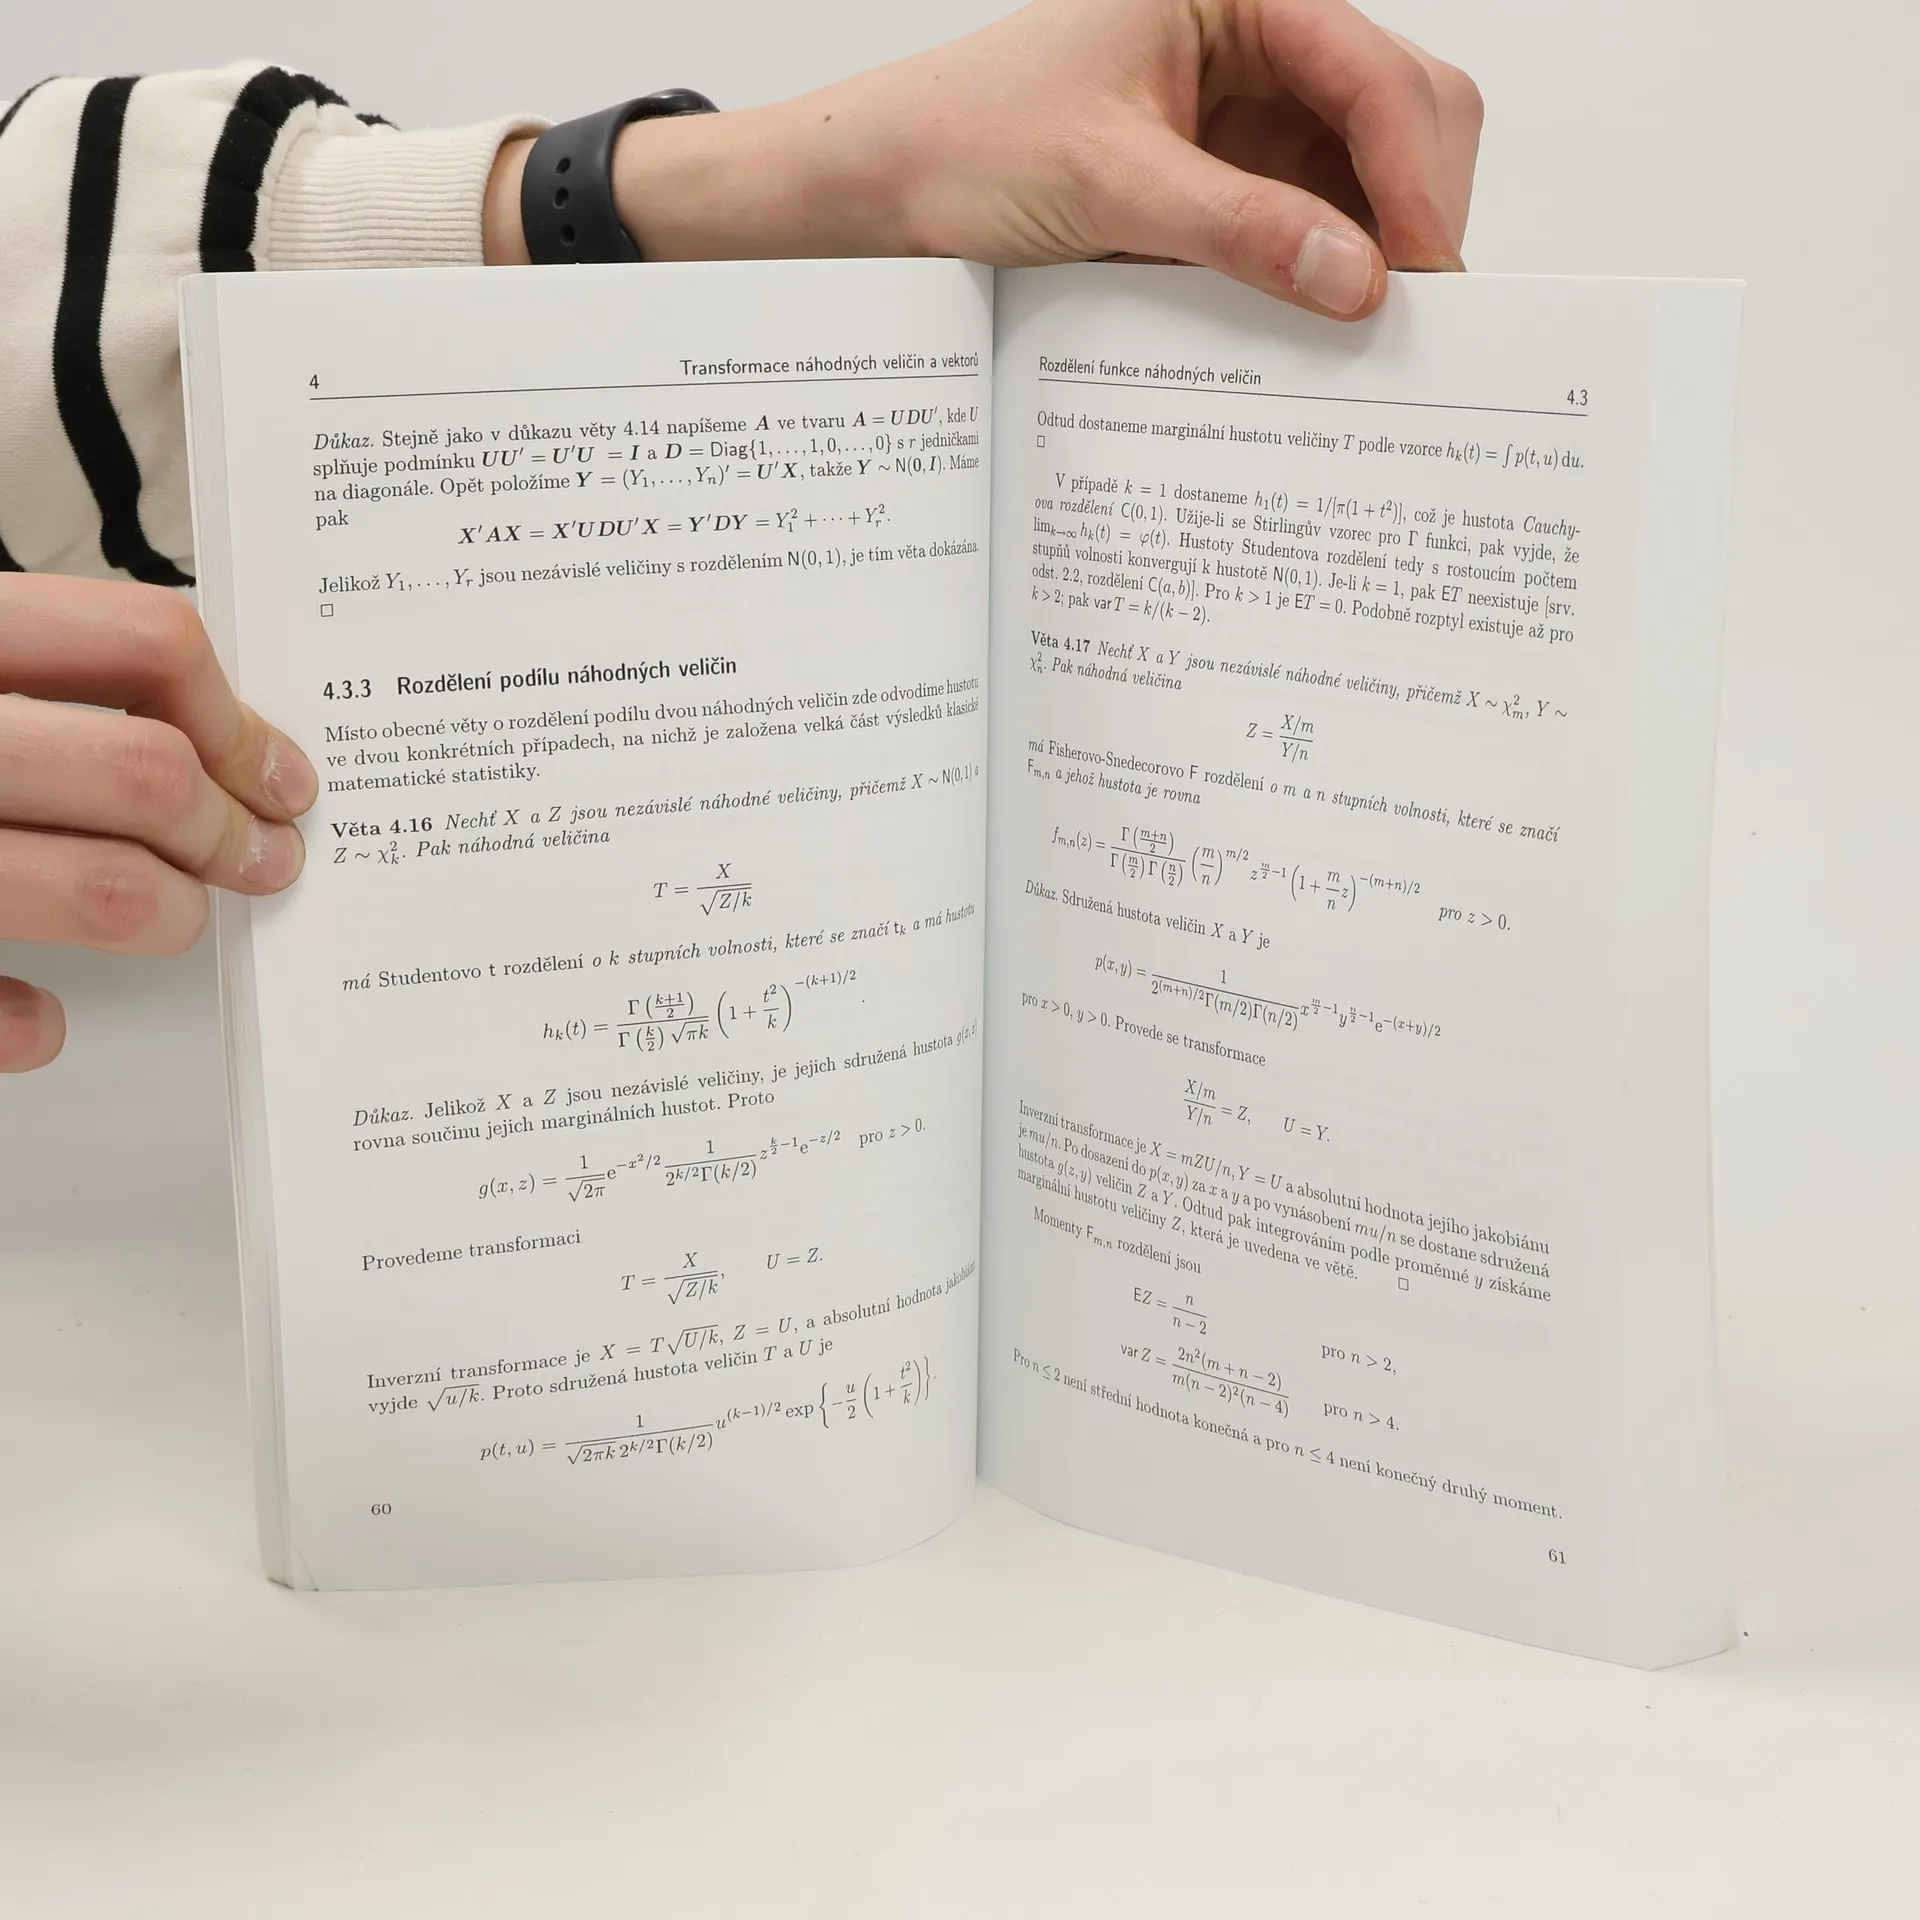 4 Transformace náhodných veličin a vektorů
Důkaz. Stejně jako v důkazu věty 4.14 napíšeme A ve tvaru A = UDU′, kde U
splňuje podmínku UU′ = U′U = I a D = Diag{1, . . . , 1, 0, . . . , 0} s r jedničkami
na diagonále. Opět položíme Y = (Y₁, . . . , Yₙ)′ = U′X, takže Y ∼ N(0, I). Máme
pak
X′AX = X′UDU′X = Y′DY = Y₁² + ··· + Yᵣ².
Jelikož Y₁, . . . , Yᵣ jsou nezávislé veličiny s rozdělením N(0, 1), je tím věta dokázána.
□
4.3.3 Rozdělení podílu náhodných veličin
Místo obecné věty o rozdělení podílu dvou náhodných veličin zde odvodíme hustotu
ve dvou konkrétních případech, na nichž je založena velká část výsledků klasické
matematické statistiky.
Věta 4.16 Nechť X a Z jsou nezávislé náhodné veličiny, přičemž X ∼ N(0,1) a
Z ∼ χ²ₖ. Pak náhodná veličina
T = X / √(Z/k)
má Studentovo t rozdělení o k stupních volnosti, které se značí tₖ a má hustotu
hₖ(t) = Γ((k+1)/2) / (Γ(k/2) √(πk)) (1 + t²/k)^(−(k+1)/2).
Důkaz. Jelikož X a Z jsou nezávislé veličiny, je jejich sdružená hustota g(x, z)
rovna součinu jejich marginálních hustot. Proto
g(x, z) = 1/√(2π) e^(−x²/2) 1/(2^(k/2)Γ(k/2)) z^(k/2−1) e^(−z/2) pro z > 0.
Provedeme transformaci
T = X / √(Z/k), U = Z.
Inverzní transformace je X = T√(U/k), Z = U, a absolutní hodnota jakobiánu
vyjde √(u/k). Proto sdružená hustota veličin T a U je
p(t, u) = 1/(√(2πk) 2^(k/2)Γ(k/2)) u^((k−1)/2) exp{−u/2 (1 + t²/k)}.
60
Rozdělení funkce náhodných veličin 4.3
Odtud dostaneme marginální hustotu veličiny T podle vzorce hₖ(t) = ∫ p(t, u) du.
□
V případě k = 1 dostaneme h₁(t) = 1/[π(1 + t²)], což je hustota Cauchy-
ova rozdělení C(0, 1). Užije-li se Stirlingův vzorec pro Γ funkci, pak vyjde, že
limₖ→∞ hₖ(t) = φ(t). Hustoty Studentova rozdělení tedy s rostoucím počtem
stupňů volnosti konvergují k hustotě N(0, 1). Je-li k = 1, pak ET neexistuje [srv.
odst. 2.2, rozdělení C(a, b)]. Pro k > 1 je ET = 0. Podobně rozptyl existuje až pro
k > 2; pak var T = k/(k − 2).
Věta 4.17 Nechť X a Y jsou nezávislé náhodné veličiny, přičemž X ∼ χ²ₘ, Y ∼
χ²ₙ. Pak náhodná veličina
Z = (X/m) / (Y/n)
má Fisherovo-Snedecorovo F rozdělení o m a n stupních volnosti, které se značí
Fₘ,ₙ a jehož hustota je rovna
fₘ,ₙ(z) = Γ((m+n)/2) / (Γ(m/2) Γ(n/2)) (m/n)^(m/2) z^(m/2−1) (1 + m/n z)^(−(m+n)/2) pro z > 0.
Důkaz. Sdružená hustota veličin X a Y je
p(x, y) = 1/(2^((m+n)/2)Γ(m/2)Γ(n/2)) x^(m/2−1) y^(n/2−1) e^(−(x+y)/2)
pro x > 0, y > 0. Provede se transformace
(X/m) / (Y/n) = Z, U = Y.
Inverzní transformace je X = mZU/n, Y = U a absolutní hodnota jejího jakobiánu
je mu/n. Po dosazení do p(x, y) za x a y a po vynásobení mu/n se dostane sdružená
hustota g(z, y) veličin Z a Y. Odtud pak integrováním podle proměnné y získáme
marginální hustotu veličiny Z, která je uvedena ve větě. □
Momenty Fₘ,ₙ rozdělení jsou
EZ = n / (n − 2) pro n > 2,
var Z = 2n²(m + n − 2) / (m(n − 2)²(n − 4)) pro n > 4.
Pro n ≤ 2 není střední hodnota konečná a pro n ≤ 4 není konečný druhý moment.
61